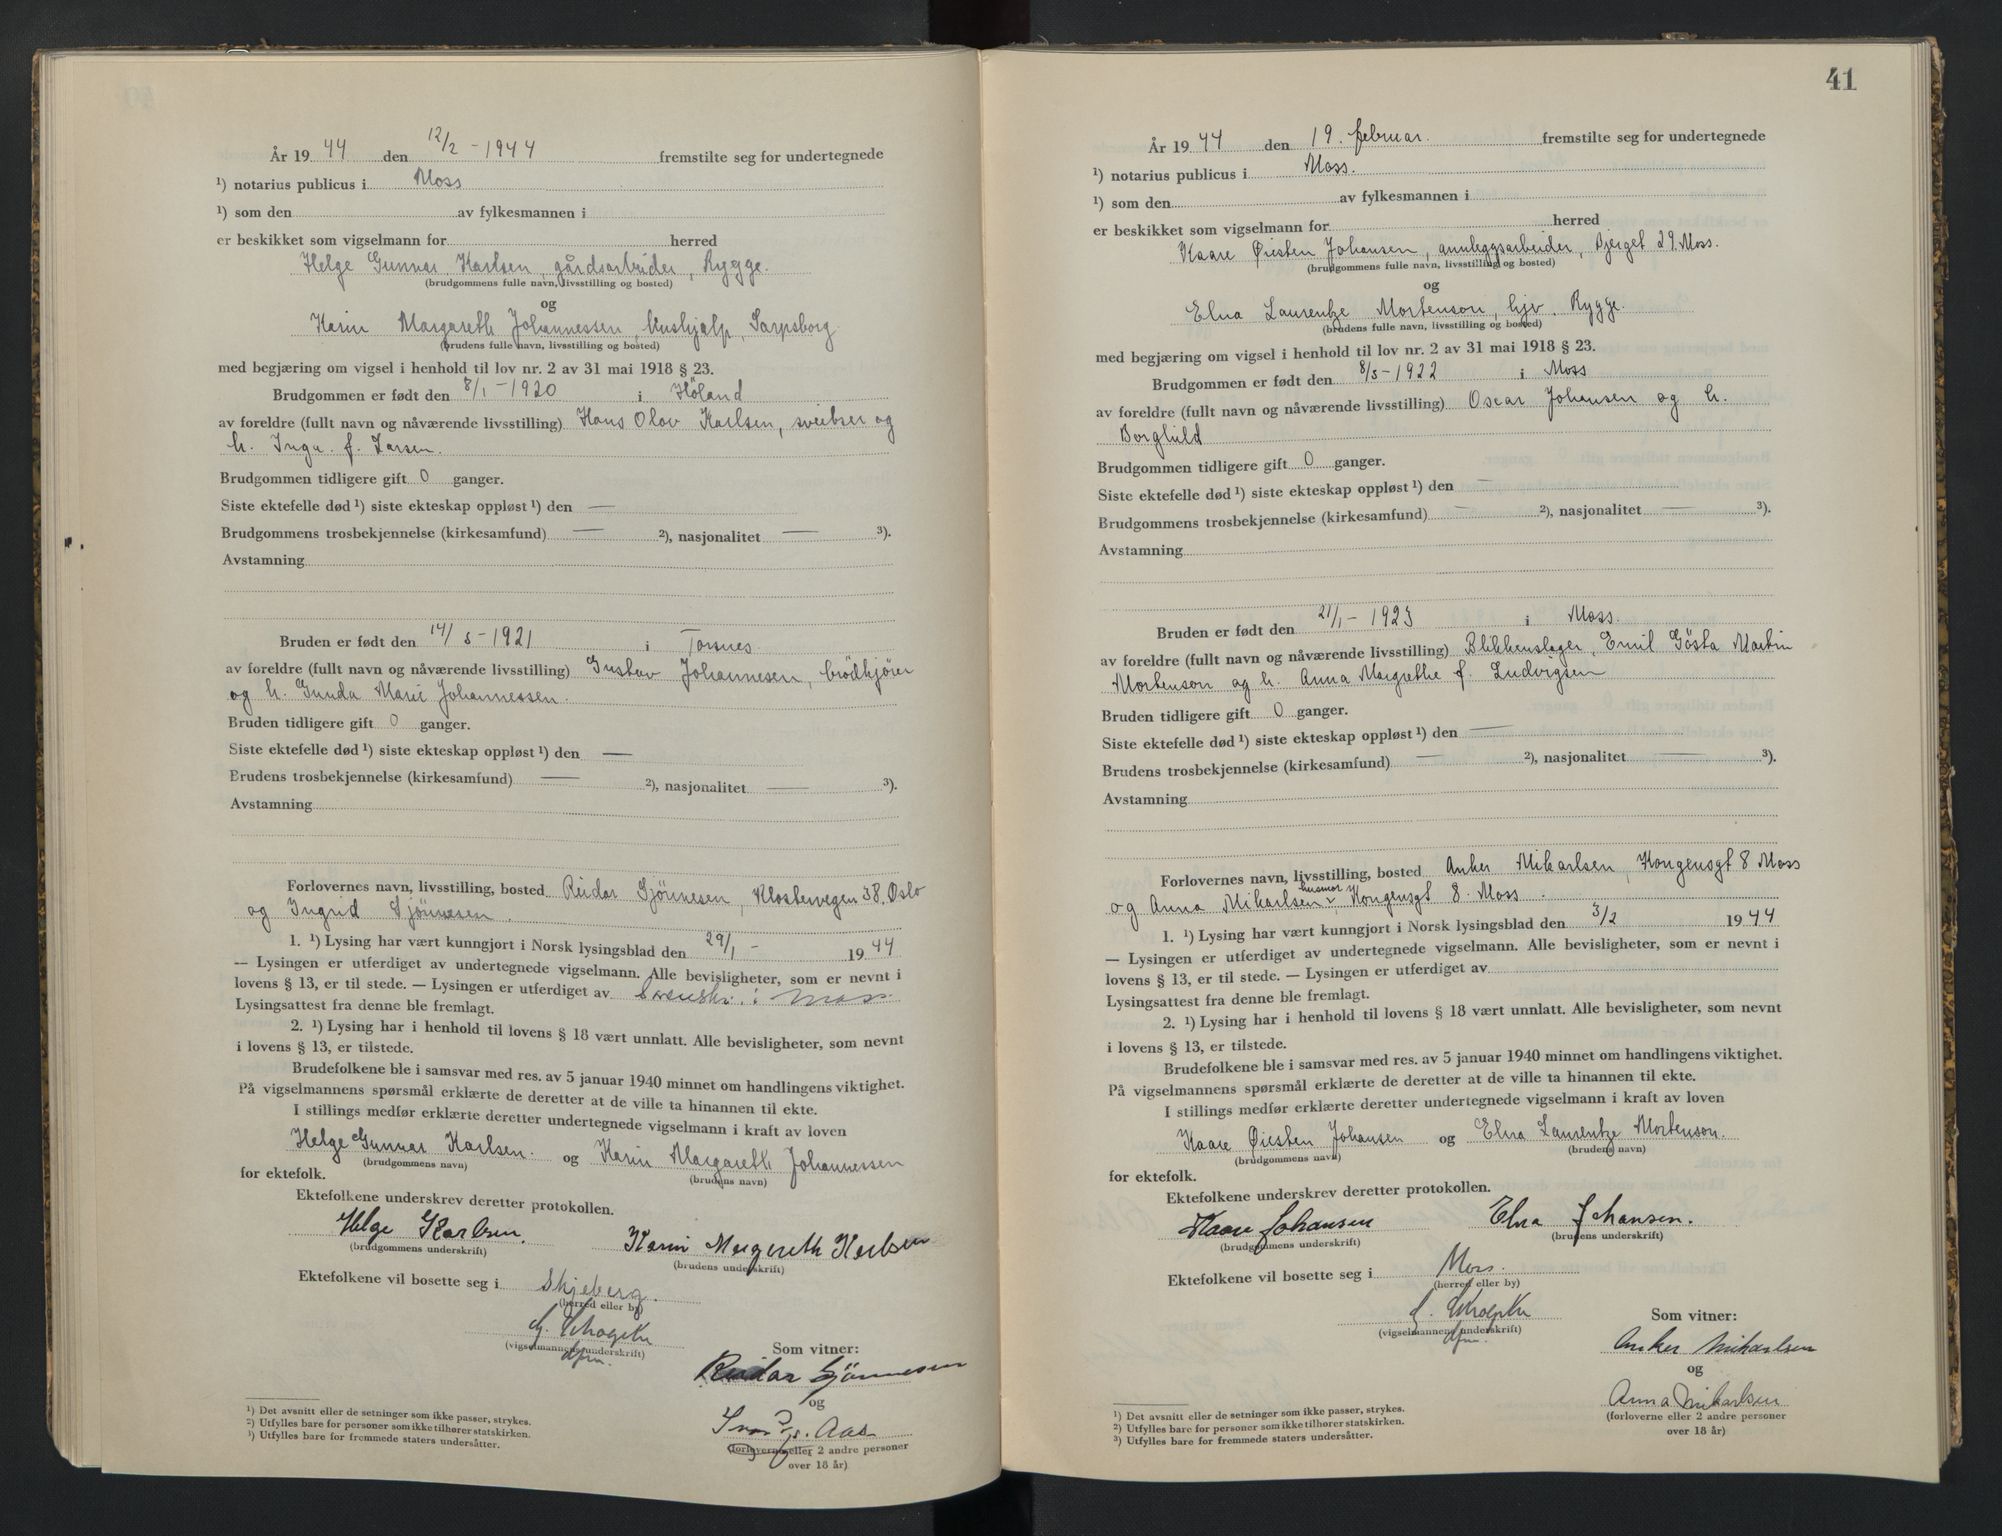 År 19 44 den 12/2 - 1944 fremstilte seg for undertegnede
¹) notarius publicus i Moss
¹) som den av fylkesmannen i
er beskikket som vigselmann for herred
Helge Gunnar Karlsen, gårdsarbeider, Rygge.
(brudgommens fulle navn, livsstilling og bosted)
og
Karin Margareth Johannessen, hushjelp, Sarpsborg
(brudens fulle navn, livsstilling og bosted)
med begjæring om vigsel i henhold til lov nr. 2 av 31 mai 1918 § 23.
Brudgommen er født den 8/1 - 1920 i Höland
av foreldre (fullt navn og nåværende livsstilling) Hans Olav Karlsen, sveitser og
h. Inga f. Larsen.
Brudgommen tidligere gift 0 ganger.
Siste ektefelle død ¹) siste ekteskap oppløst ¹) den —
Brudgommens trosbekjennelse (kirkesamfund) — ²), nasjonalitet — ³).
Avstamning
Bruden er født den 14/5 - 1921 i Torsnes.
av foreldre (fullt navn og nåværende livsstilling) Gustav Johannesen, brödkjörer
og h. Gunda Marie Johannessen.
Bruden tidligere gift 0 ganger.
Siste ektefelle død ¹) siste ekteskap oppløst ¹) den —
Brudens trosbekjennelse (kirkesamfund) — ²), nasjonalitet — ³).
Avstamning
Forlovernes navn, livsstilling, bosted Reidar Gjönnesen, Klostervegen 38, Oslo
og Ingrid Gjönnesen.
1. ¹) Lysing har vært kunngjort i Norsk lysingsblad den 29/1 - 1944
— Lysingen er utferdiget av undertegnede vigselmann. Alle bevisligheter, som er nevnt i
lovens § 13, er til stede. — Lysingen er utferdiget av Sorenskr. i Moss
Lysingsattest fra denne ble fremlagt.
2. ¹) Lysing har i henhold til lovens § 18 vært unnlatt. Alle bevisligheter, som nevnt
i lovens § 13, er tilstede.
Brudefolkene ble i samsvar med res. av 5 januar 1940 minnet om handlingens viktighet.
På vigselmannens spørsmål erklærte de deretter at de ville ta hinannen til ekte.
I stillings medfør erklærte deretter undertegnede vigselmann i kraft av loven
Helge Gunnar Karlsen. og Karin Margareth Johannessen
(brudgommens navn) (brudens navn)
for ektefolk.
Ektefolkene underskrev deretter protokollen.
Helge Karlsen. Karin Margareth Karlsen
(brudgommens underskrift) (brudens underskrift)
Ektefolkene vil bosette seg i Skjeberg.
(herred eller by)
(vigselmannens underskrift)
Som vitner:
Reidar Gjönnesen
og
Aas
(forloverne eller 2 andre personer
over 18 år)
¹) Det avsnitt eller de setninger som ikke passer, strykes.
²) Utfylles bare for personer som ikke tilhører statskirken.
³) Utfylles bare for fremmede staters undersåtter.
41
År 19 44 den 19. februar. fremstilte seg for undertegnede
¹) notarius publicus i Moss.
¹) som den av fylkesmannen i
er beskikket som vigselmann for herred
Kaare Øiesten Johansen, annleggsarbeider, Bjerget 29, Moss.
(brudgommens fulle navn, livsstilling og bosted)
og
Elna Laurentze Mortenson, hjv. Rygge.
(brudens fulle navn, livsstilling og bosted)
med begjæring om vigsel i henhold til lov nr. 2 av 31 mai 1918 § 23.
Brudgommen er født den 8/5 - 1922 i Moss
av foreldre (fullt navn og nåværende livsstilling) Oscar Johansen og h.
Borghild
Brudgommen tidligere gift 0 ganger.
Siste ektefelle død ¹) siste ekteskap oppløst ¹) den —
Brudgommens trosbekjennelse (kirkesamfund) — ²), nasjonalitet — ³).
Avstamning
Bruden er født den 21/1 - 1923 i Moss.
av foreldre (fullt navn og nåværende livsstilling) Blikkenslager, Emil Gösta Martin
Mortenson og h. Anna Margrethe f. Ludvigsen
Bruden tidligere gift 0 ganger.
Siste ektefelle død ¹) siste ekteskap oppløst ¹) den —
Brudens trosbekjennelse (kirkesamfund) — ²), nasjonalitet — ³).
Avstamning
Forlovernes navn, livsstilling, bosted Anker Mikarlsen, Kongensgt 8 Moss
og Anna Mikarlsen, husmor Kongensgt 8. Moss.
1. ¹) Lysing har vært kunngjort i Norsk lysingsblad den 3/2 1944
— Lysingen er utferdiget av undertegnede vigselmann. Alle bevisligheter, som er nevnt i
lovens § 13, er til stede. — Lysingen er utferdiget av
Lysingsattest fra denne ble fremlagt.
2. ¹) Lysing har i henhold til lovens § 18 vært unnlatt. Alle bevisligheter, som nevnt
i lovens § 13, er tilstede.
Brudefolkene ble i samsvar med res. av 5 januar 1940 minnet om handlingens viktighet.
På vigselmannens spørsmål erklærte de deretter at de ville ta hinannen til ekte.
I stillings medfør erklærte deretter undertegnede vigselmann i kraft av loven
Kaare Øiesten Johansen og Elna Laurentze Mortenson.
(brudgommens navn) (brudens navn)
for ektefolk.
Ektefolkene underskrev deretter protokollen.
Kaare Johansen Elna Johansen.
(brudgommens underskrift) (brudens underskrift)
Ektefolkene vil bosette seg i Moss.
(herred eller by)
(vigselmannens underskrift)
Som vitner:
Anker Mikarlsen
og
Anna Mikarlsen
(forloverne eller 2 andre personer
over 18 år)
¹) Det avsnitt eller de setninger som ikke passer, strykes.
²) Utfylles bare for personer som ikke tilhører statskirken.
³) Utfylles bare for fremmede staters undersåtter.